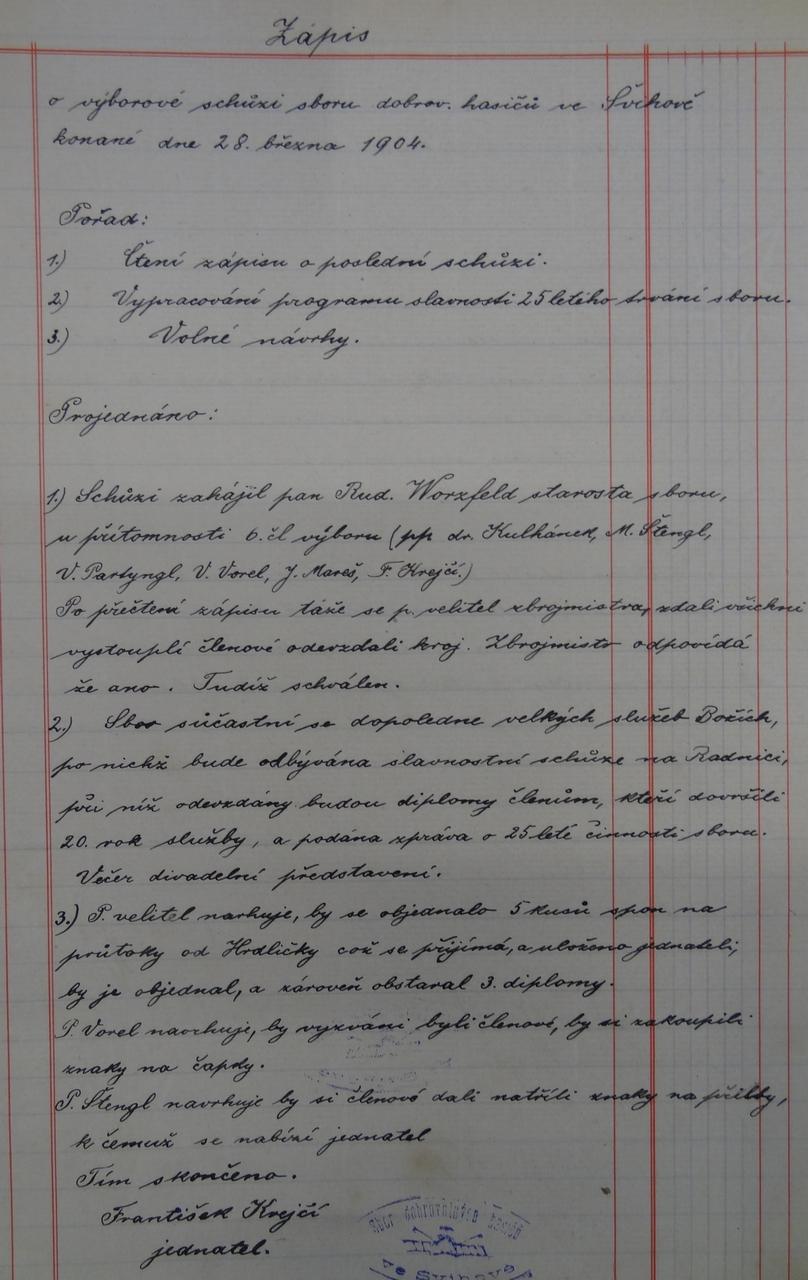 Zápis
o výborové schůzi sboru dobrov. hasičů ve Švihově
konané dne 28. března 1904.
Pořad:
1.) Čtení zápisu o poslední schůzi.
2.) Vypracování programu slavnosti 25letého trvání sboru.
3.) Volné návrhy.
Projednáno:
1.) Schůzi zahájil pan Rud. Worzfeld starosta sboru,
u přítomnosti 6. čl výboru (pp. dr. Kulhánek, M. Štengl,
V. Partyngl, V. Vorel, J. Mareš, F. Krejčí.)
Po přečtení zápisu táže se p. velitel zbrojmistra, zdali všichni
vystouplí členové odevzdali kroj. Zbrojmistr odpovídá
že ano. Tudíž schválen.
2.) Sbor súčastní se dopoledne velkých služeb Božích,
po nichž bude odbývána slavnostní schůze na Radnici,
při níž odevzdány budou diplomy členům, kteří dovršili
20. rok služby, a podána zpráva o 25leté činnosti sboru.
Večer divadelní představení.
3.) P. velitel narhuje, by se objednalo 5 kusů spon na
průtoky od Hrdličky což se přijímá, a uloženo jednateli,
by je objednal, a zároveň obstaral 3. diplomy.
P. Vorel navrhuje, by vyzváni byli členové, by si zakoupili
znaky na čapky.
P. Štengl navrhuje by si členové dali natříti znaky na přilby,
k čemuž se nabízí jednatel
Tím skončeno.
František Krejčí
jednatel.
Sbor dobrovolných hasičů
ve Švihově